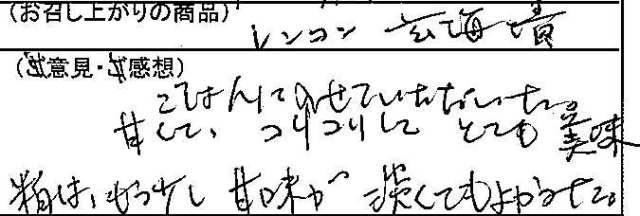 (お召し上がりの商品) レンコン 玄海漬
(ご意見・ご感想)
ごはんにのせていただいた。
甘くて、コリコリして とても美味
粕は、もう少し 甘味が 淡くてもよかった。